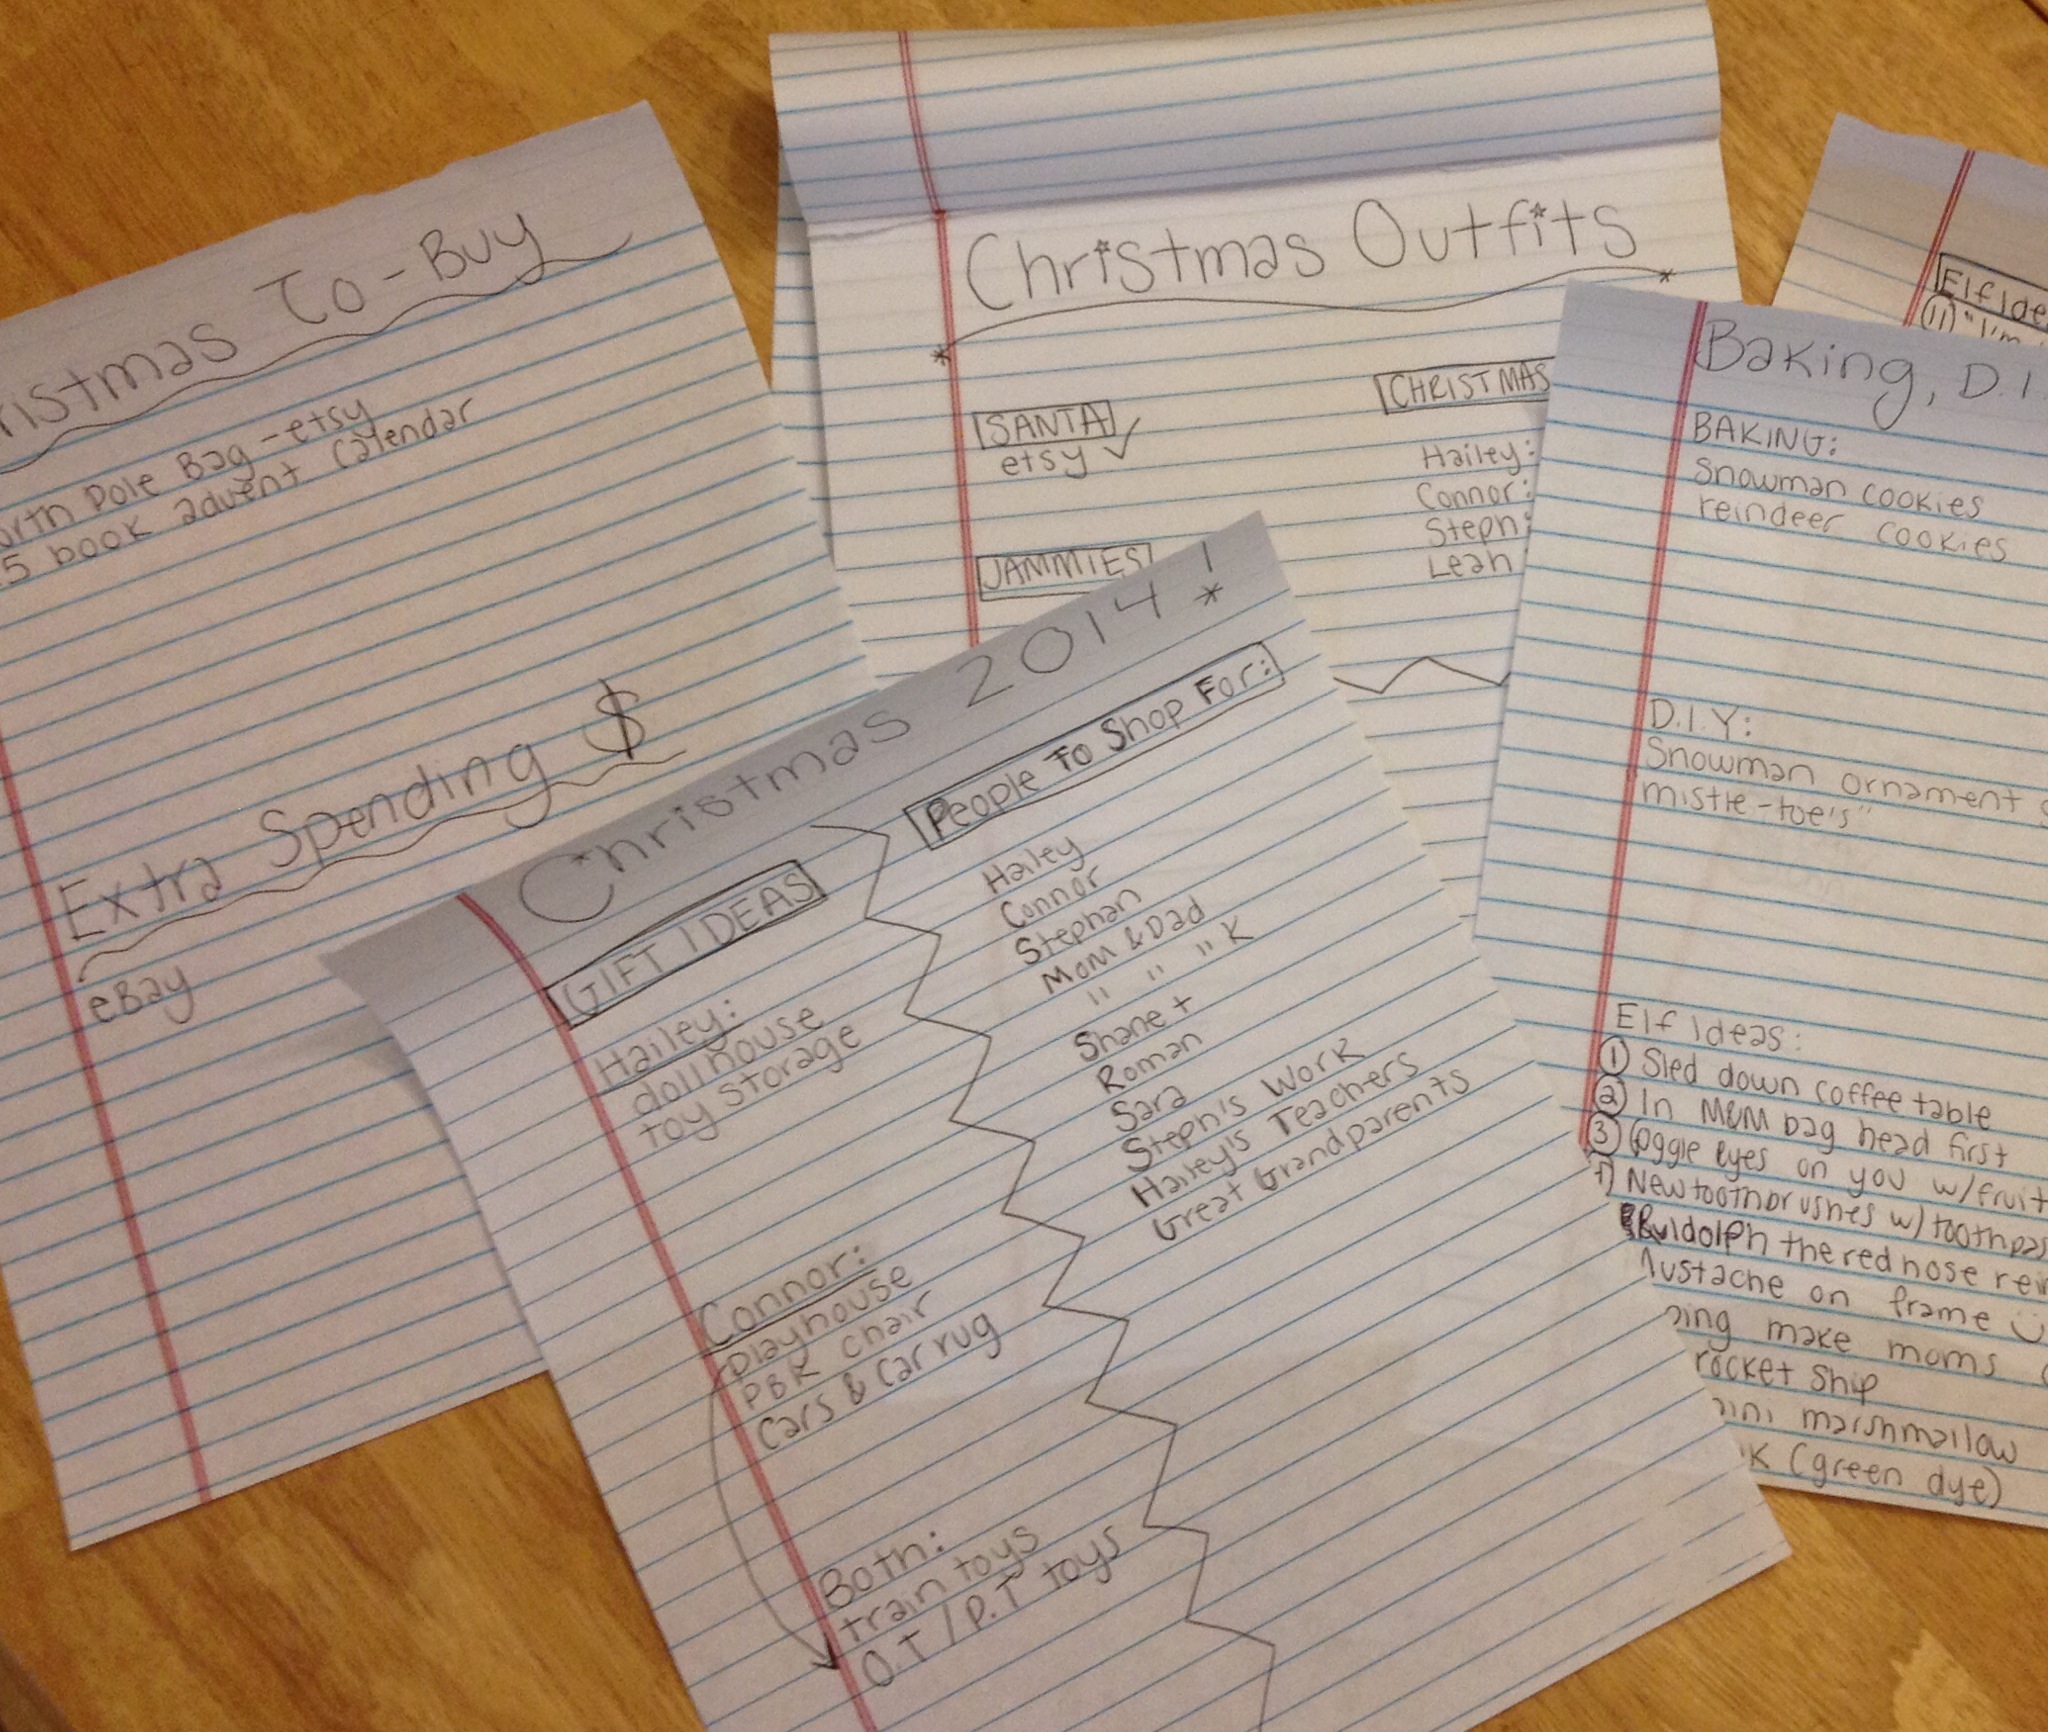 To-Buy
Pole Bag - etsy
book advent calendar
Extra Spending $
eBay
Christmas Outfits
SANTA
etsy ✓
JAMMIES
CHRISTMAS
Hailey:
Connor:
Steph:
Leah
Elf Ide
11 "I'm
Baking, D.I.
BAKING:
Snowman cookies
reindeer cookies
D.I.Y:
Snowman ornament
mistle-toe's"
Elf Ideas:
1 Sled down coffee table
2 In M&M bag head first
3 Goggle eyes on you w/fruit
New toothbrushes w/
Ruldolph the red nose
on frame
make moms
rocket ship
marshmallow
(green dye)
Christmas 2014!
GIFT IDEAS
Hailey:
dollhouse
toy storage
Connor:
playhouse
PBK chair
Cars & car rug
Both:
train toys
O.T / P.T toys
People To Shop For:
Hailey
Connor
Stephan
Mom & Dad
" " " K
Shane +
Roman
Sara
Steph's Work
Hailey's Teachers
Great Grandparents